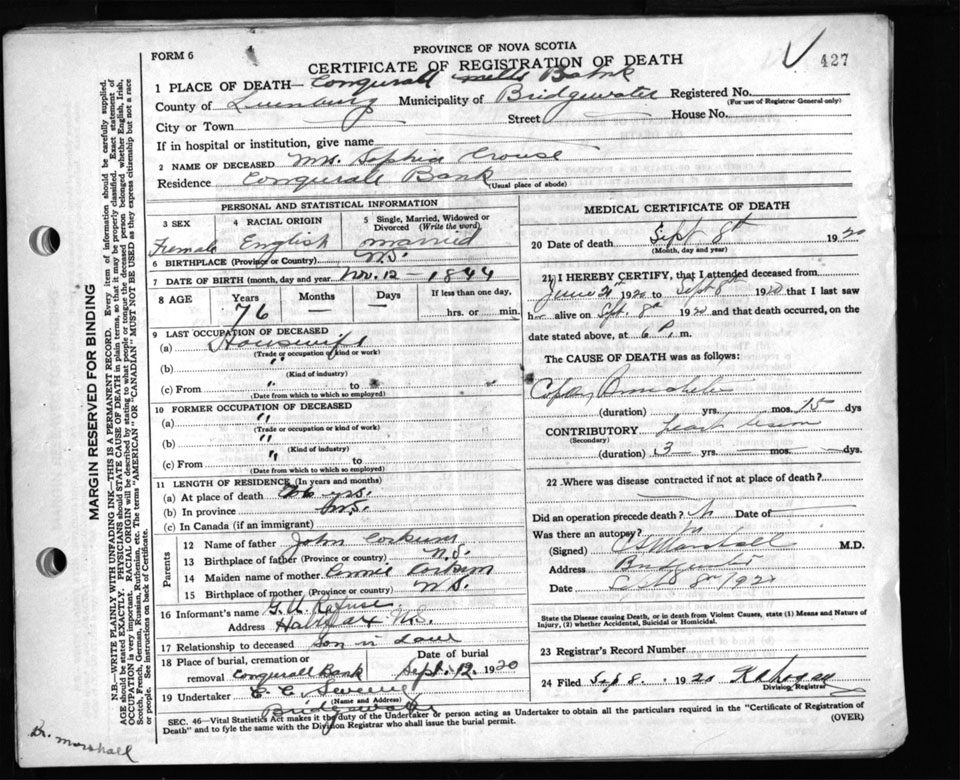 427
PROVINCE OF NOVA SCOTIA
FORM 6
CERTIFICATE OF REGISTRATION OF DEATH
1 PLACE OF DEATH— Bank
County of Lunenburg Municipality of Bridgewater Registered No.
(For use of Registrar General only)
City or Town Street House No.
If in hospital or institution, give name
2 NAME OF DECEASED Mrs. Sophia Crouse
Residence Conquerall Bank
(Usual place of abode)
PERSONAL AND STATISTICAL INFORMATION
3 SEX
Female
4 RACIAL ORIGIN
English
5 Single, Married, Widowed or Divorced (Write the word)
Married
6 BIRTHPLACE (Province or Country) N.S.
7 DATE OF BIRTH (month, day and year) Nov. 12 – 1844
8 AGE
Years
76
Months
—
Days
—
If less than one day,
hrs. or min.
9 LAST OCCUPATION OF DECEASED
(a) Housewife
(Trade or occupation or kind or work)
(b) "
(Kind of industry)
(c) From " to
(Date from which to which so employed)
10 FORMER OCCUPATION OF DECEASED
(a) "
(Trade or occupation or kind of work)
(b) "
(Kind of industry)
(c) From " to
(Date from which to which so employed)
11 LENGTH OF RESIDENCE (In years and months)
(a) At place of death yrs.
(b) In province N.S.
(c) In Canada (if an immigrant)
Parents
12 Name of father John
13 Birthplace of father (Province or country) N.S.
14 Maiden name of mother Annie
15 Birthplace of mother (Province or country) N.S.
16 Informant's name G. A. Rafuse
Address Halifax N.S.
17 Relationship to deceased Son in Law
18 Place of burial, cremation or removal Conquerall Bank
Date of burial
Sept. 12, 1920
19 Undertaker
(Name and Address)
Bridgewater
MEDICAL CERTIFICATE OF DEATH
20 Date of death Sept 8th 1920
(Month, day and year)
21 I HEREBY CERTIFY, that I attended deceased from
June 21st 1920 to Sept 8th 1920 that I last saw
h alive on Sept. 8th 1920 and that death occurred, on
date stated above, at 6 P. m.
The CAUSE OF DEATH was as follows:
Bronchitis
(duration) yrs. mos. 15 dys
CONTRIBUTORY heart lesion
(Secondary)
(duration) 3 yrs. mos. dys.
22 Where was disease contracted if not at place of death?
Did an operation precede death? Date of
Was there an autopsy? no
(Signed) Marshall M.D.
Address Bridgewater
Date Sept 8th/920
State the Disease causing Death, or in death from Violent Causes, state (1) Means and Nature of
Injury, (2) whether Accidental, Suicidal or Homicidal.
23 Registrar's Record Number
24 Filed Sep 8. 1920
Division Registrar
SEC. 46—Vital Statistics Act makes it the duty of the Undertaker or person acting as Undertaker to obtain all the particulars required in the "Certificate of Registration of
Death" and to fyle the same with the Division Registrar who shall issue the burial permit.
(OVER)
MARGIN RESERVED FOR BINDING
N.B.—WRITE PLAINLY WITH UNFADING INK—THIS IS A PERMANENT RECORD. Every item of information should be carefully supplied.
AGE should be stated EXACTLY. PHYSICIANS should STATE CAUSE OF DEATH in plain terms, so that it may be properly classified. Exact statement of
OCCUPATION is very important. RACIAL ORIGIN will be described by stating to what people or tongue the deceased person belonged whether English, Irish,
Scotch, French, German, Russian, Ruthenian, etc. The terms "AMERICAN" OR "CANADIAN" MUST NOT BE USED as they express citizenship but not a race
or people. See instructions on back of Certificate.
Dr. Marshall